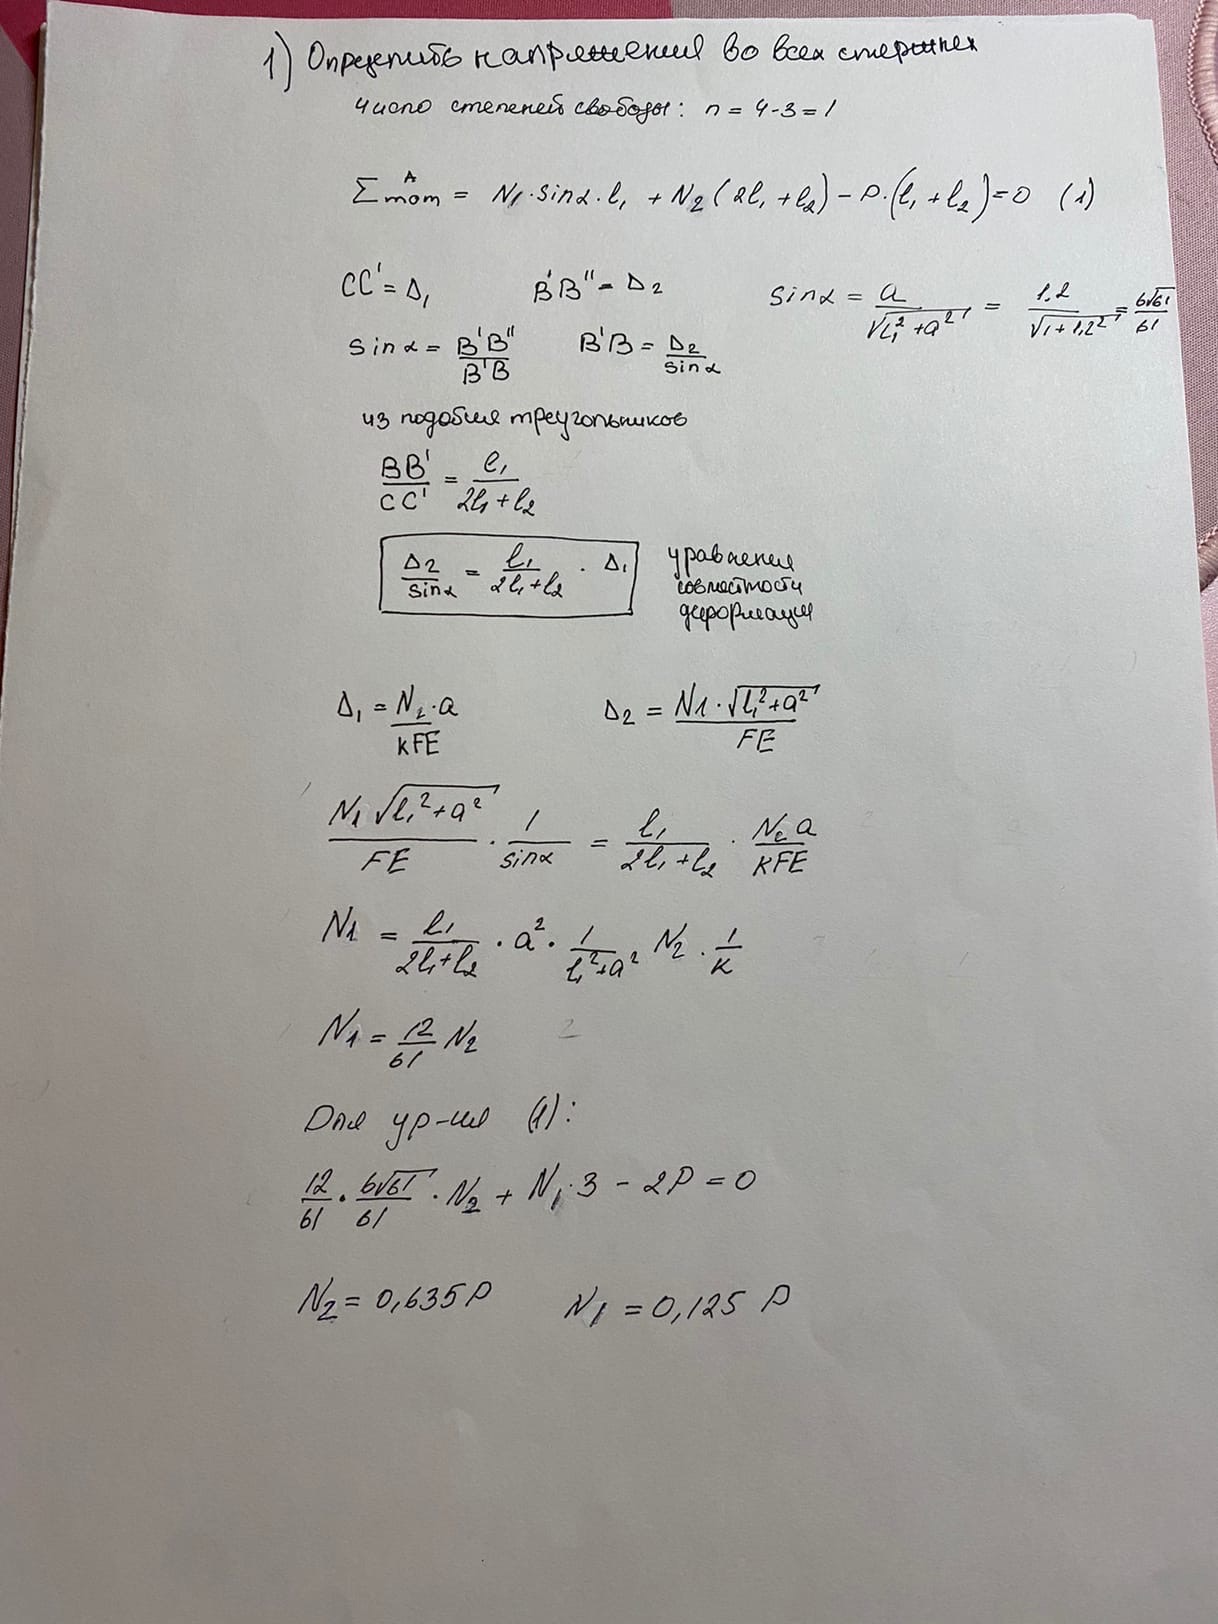 1) Определить напряжения во всех стержнях
Число степеней свободы: n = 4-3 = 1
Σ mom ᴬ = N₁·sinα·l₁ + N₂(2l₁+l₂) - P·(l₁+l₂) = 0 (1)
CC' = Δ₁ B'B'' = Δ₂ sinα = a/√(l₁²+a²) = 1,2/√(1+1,2²) = 6√61/61
sinα = B'B''/B'B B'B = Δ₂/sinα
из подобия треугольников
BB'/CC' = l₁/(2l₁+l₂)
Δ₂/sinα = l₁/(2l₁+l₂) · Δ₁ уравнения
совместости
деформации
Δ₁ = N₂·a/kFE Δ₂ = N1·√(l₁²+a²)/FE
N1 √(l₁²+a²)/FE · 1/sinα = l₁/(2l₁+l₂) · N₂a/kFE
N1 = l₁/(2l₁+l₂) · a² · 1/(l₁²+a²) N₂ · 1/k
N₁ = 12/61 N₂
Для ур-ия (1):
12/61 · 6√61/61 · N₂ + N₁·3 - 2P = 0
N₂ = 0,635P N₁ = 0,125 P